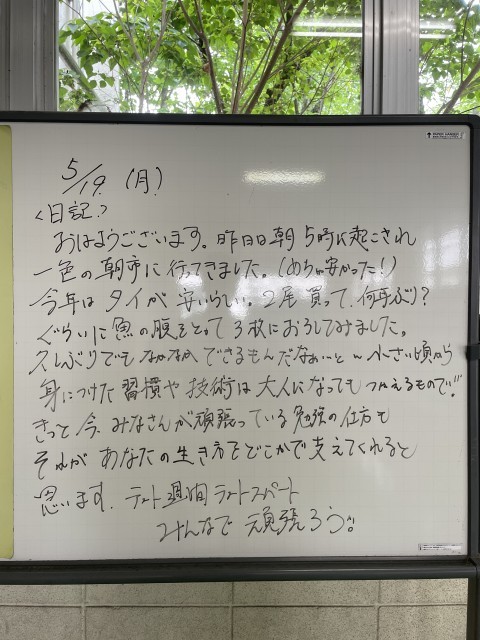 5/19 (月)
<日記>
おはようございます。昨日は朝5時に起こされ
一色の朝市に行ってきました。(めちゃ安かった!)
今年はタイが安いらしい。2尾買って、何年ぶり?
ぐらいに魚の腹をとって3枚におろしてみました。
久しぶりでもなかなかできるもんだなぁいと〜小さい頃から
身につけた習慣や技術は大人になってもつかえるもので!!
きっと今、みなさんが頑張っている勉強の仕方も
それがあなたの生き方をどこかで支えてくれると
思います。テスト週間ラストスパート
みんなで頑張ろう!!